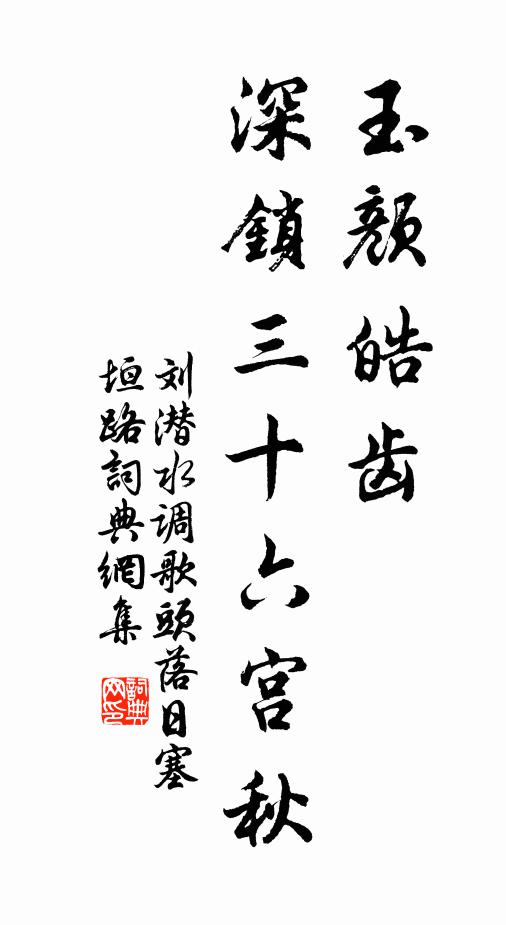 玉颜皓齿
深鎖三十六宫秋
刘潜水调歌頭落日塞
垣路詞典網集
詞典
网印